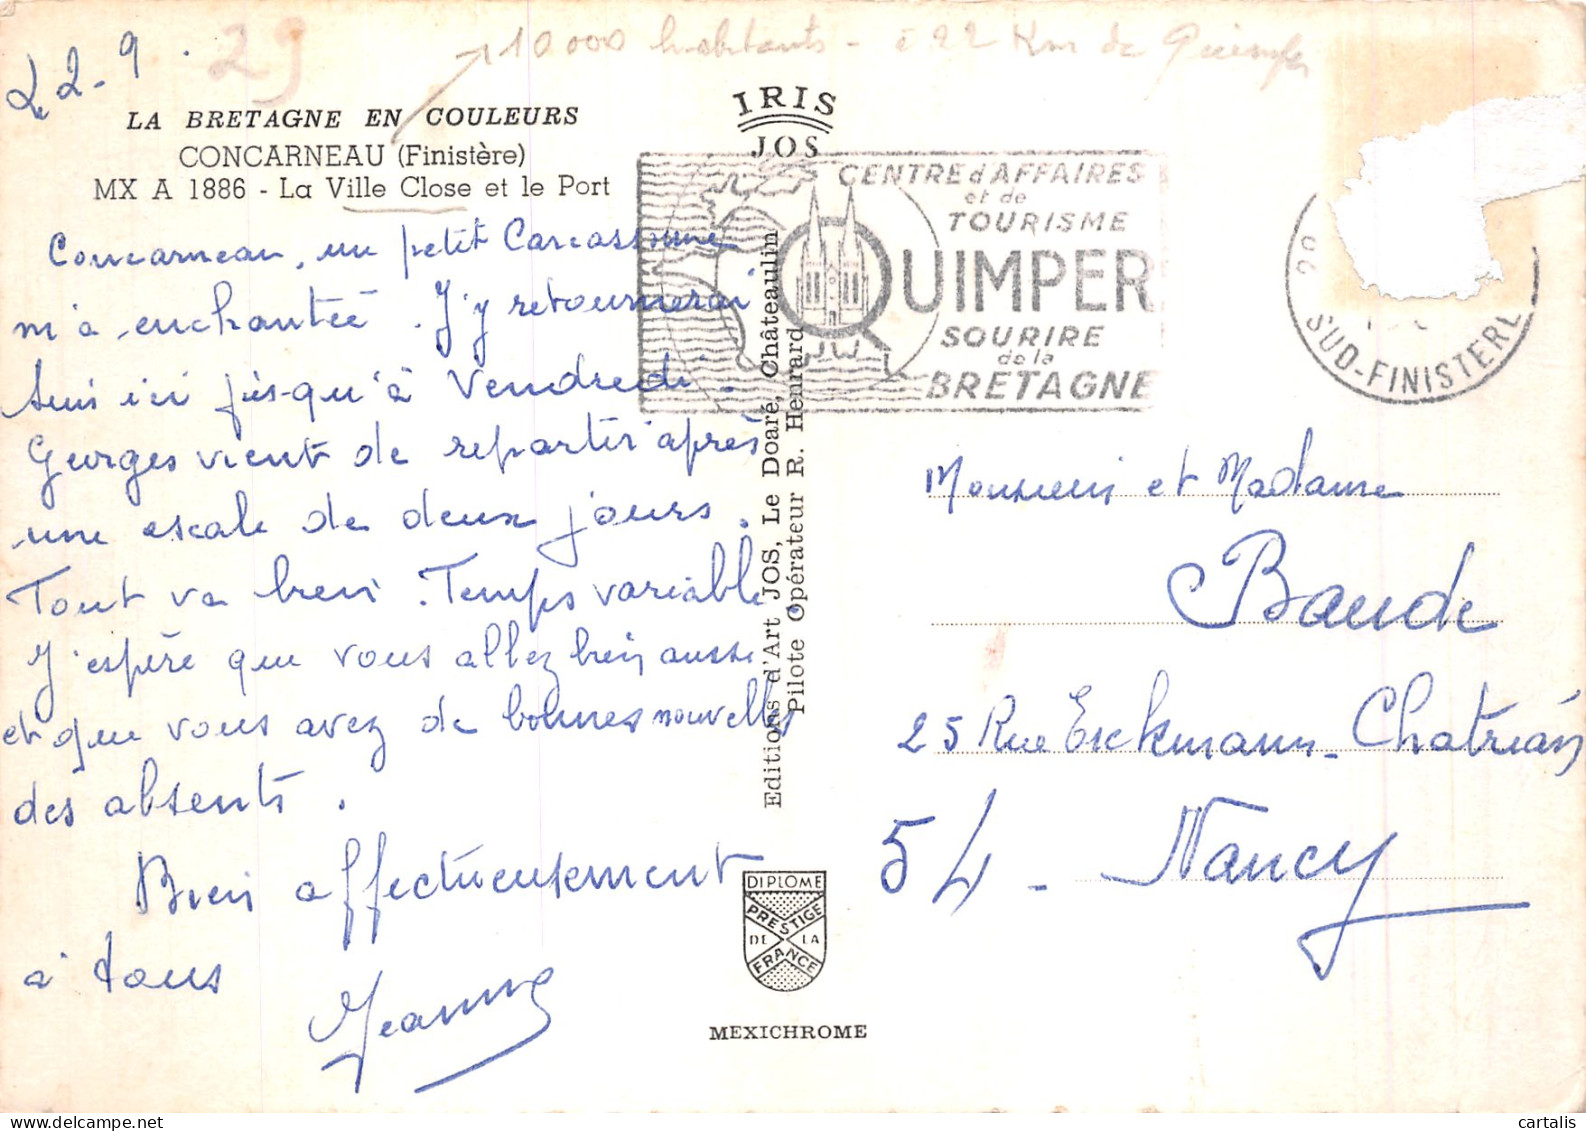 Le 2-9.
29
10 000 habitants - à 22 Km de Quimper
LA BRETAGNE EN COULEURS
CONCARNEAU (Finistère)
MX A 1886 - La Ville Close et le Port
Concarneau, un petit Carcassonne
m'a enchantée. J'y retournerai
Suis ici jus-qu'à Vendredi.
Georges vient de repartir après
une escale de deux jours.
Tout va bien. Temps variable.
J'espère que vous allez bien aussi
et que vous avez de bonnes nouvelles
des absents.
Bien affectueusement
à tous
Jeanne
IRIS
JOS
Editions d'Art JOS, Le Doaré, Châteaulin
Pilote Opérateur R. Henrard
DIPLOME
PRESTIGE
DE LA
FRANCE
MEXICHROME
CENTRE d'AFFAIRES
et de
TOURISME
QUIMPER
SOURIRE
de la
BRETAGNE
SUD-FINISTERE
Monsieur et Madame
Baude
25 Rue Erckmann-Chatrian
54 - Nancy
cartalis